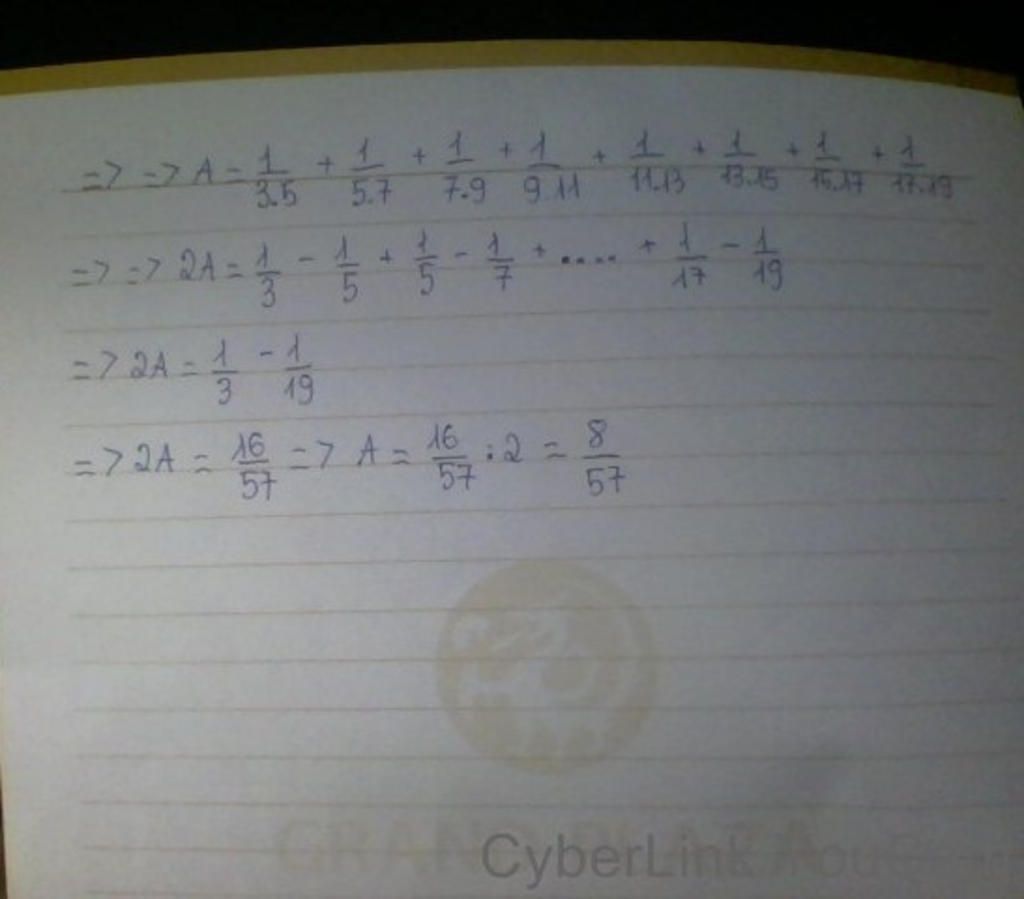 => => A = 1/3.5 + 1/5.7 + 1/7.9 + 1/9.11 + 1/11.13 + 1/13.15 + 1/15.17 + 1/17.19
=> => 2A = 1/3 - 1/5 + 1/5 - 1/7 + ..... + 1/17 - 1/19
=> 2A = 1/3 - 1/19
=> 2A = 16/57 => A = 16/57 : 2 = 8/57
CyberLink